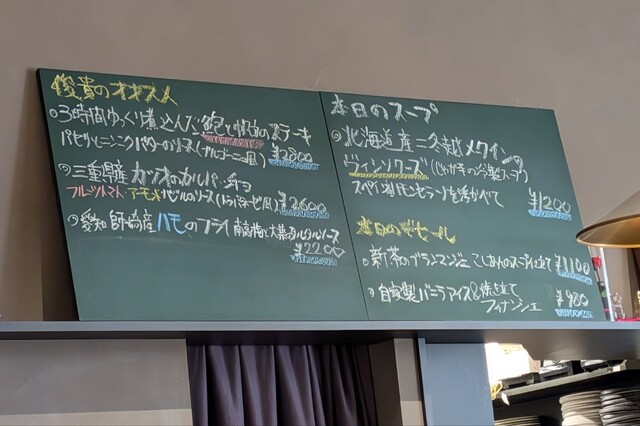 俊貴のオススメ
3時間ゆっくり煮込んだ鮑と帆立のステーキ
パセリとニンニクバターのソース(ブルゴーニュ風) ¥2800
三重県産 カツオのカルパッチョ
フルーツトマト・アーモンド バジルのソース(トラパネーゼ風) ¥2600
愛知 師崎産 ハモのフライ 南高梅と大葉のタルタルソース
¥2200
本日のスープ
北海道産 三久越メークインの
ヴィシソワーズ (じゃがいもの冷製スープ)
スペイン産生ハムを浮かべて ¥1200
本日のデセール
新茶のブランマンジェ こしあんのスープ仕立て ¥1100
自家製バニラアイス&焼き立て
フィナンシェ ¥980